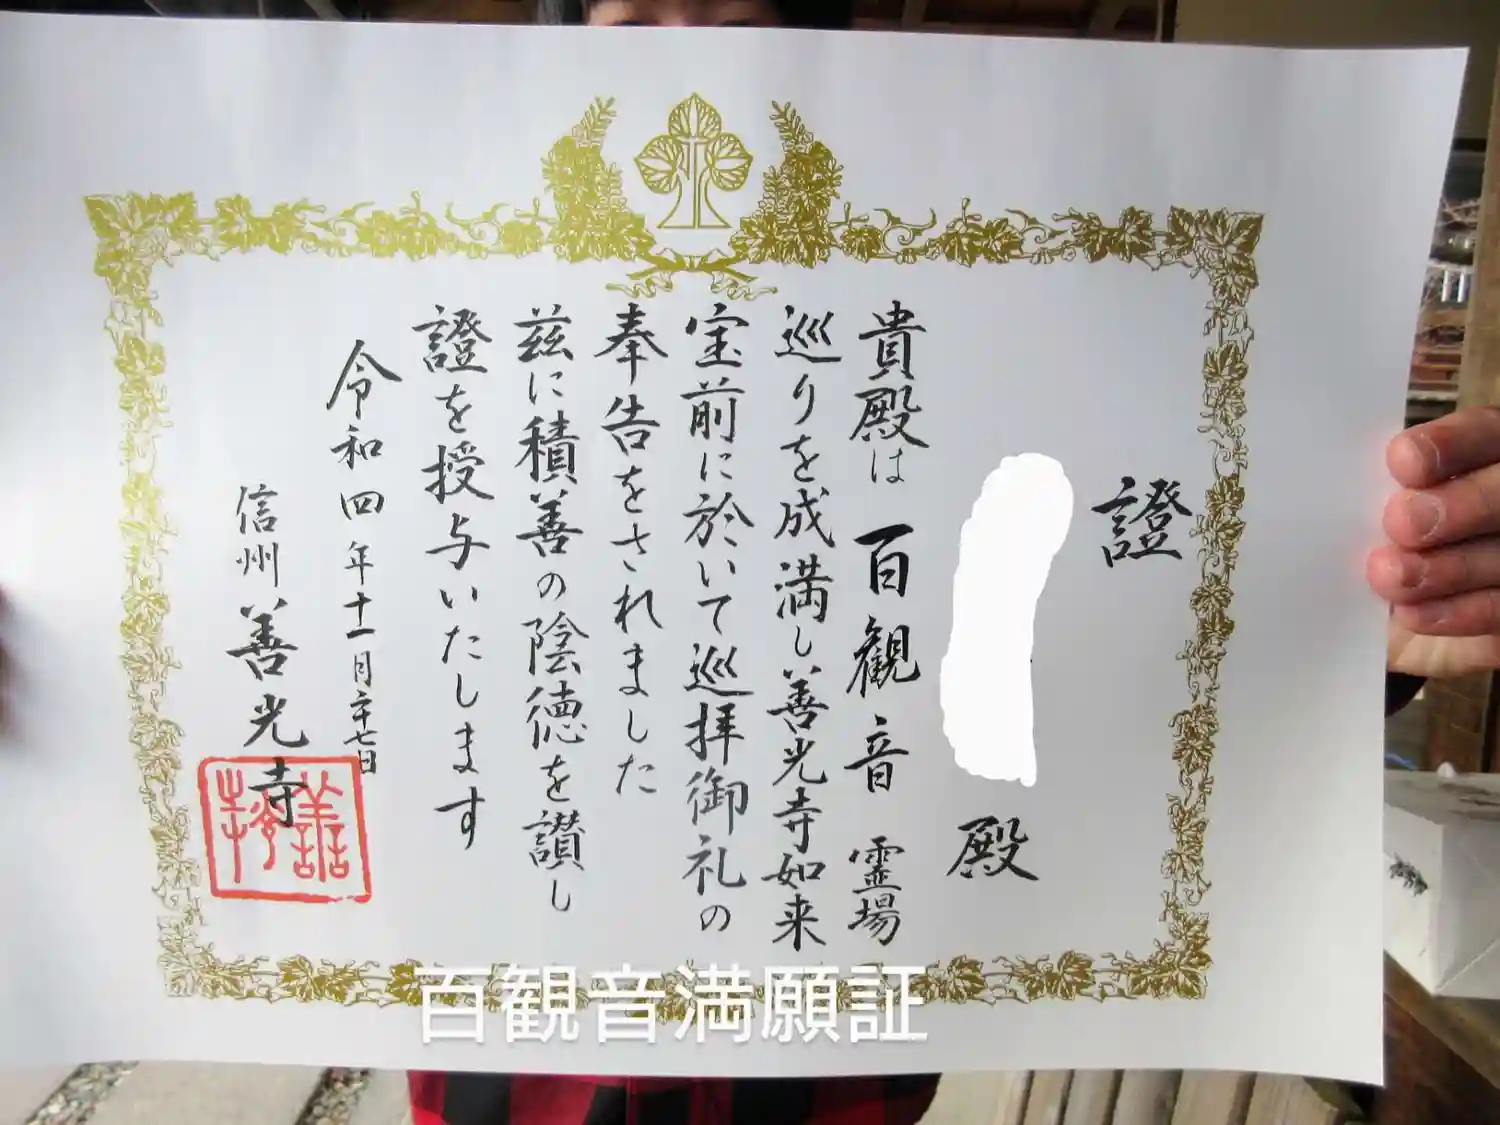 證
殿
貴殿は百観音霊場
巡りを成満し善光寺如来
宝前に於いて巡拝御礼の
奉告をされました
茲に積善の陰徳を讃し
證を授与いたします
令和四年十一月二十七日
信州善光寺
百観音満願証